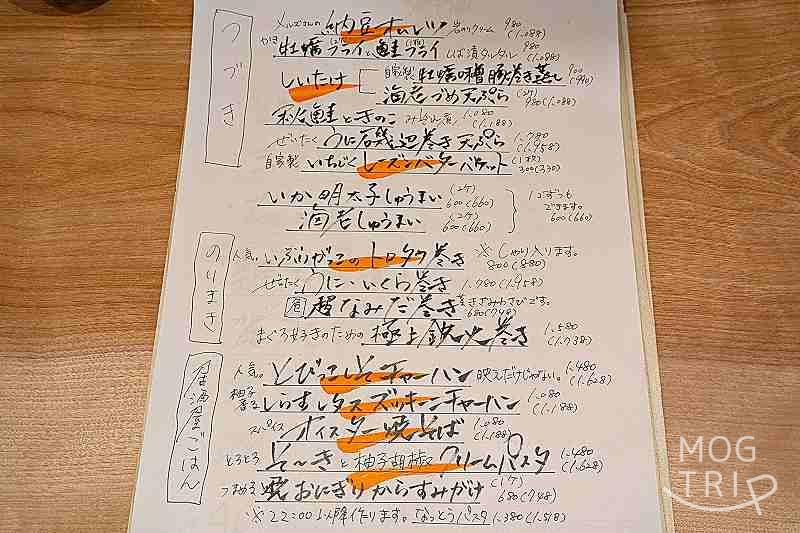 つづき
メルズさんの 納豆オムレツ 岩のりクリーム 980 (1.088)
牡蠣フライと鮭フライ しば漬タルタル 980 (1.088)
しいたけ
自家製 牡蠣味噌豚巻き蒸し 900 (990)
海老づめ天ぷら (2ケ) 980 (1.088)
秋鮭ときのこ 1.080 (1.188)
ぜいたく うに磯辺巻き天ぷら 1.780 (1.958)
自家製 いちじくレーズンバターバケット (1枚) 300 (330)
いか明太子しゅうまい (2ケ) 600 (660)
海老しゅうまい (2ケ) 600 (660)
1コずつも できます。 600 (660)
のりまき
人気。 いぶりがっこのトロタク巻き ※しゃり入ります。 800 (880)
ぜいたく うに・いくら巻き 1.780 (1.958)
超なみだ巻き きざみわさびです。 680 (748)
まぐろ好きのための 極上鉄火巻き 1.580 (1.738)
居酒屋ごはん
人気。 とびっこしそチャーハン 映えだけじゃない。 1.480 (1.628)
柚子香る しらすレタスズッキーニチャーハン 1.080 (1.188)
スパイス オイスター焼そば 1.080 (1.188)
とろとろ そ〜きと柚子胡椒クリームパスタ 1.480 (1.628)
つまめる 焼おにぎりからすみがけ (1ケ) 680 (748)
※22:00以降作ります。なっとうパスタ 1.380 (1.518)
MOG
TRIP